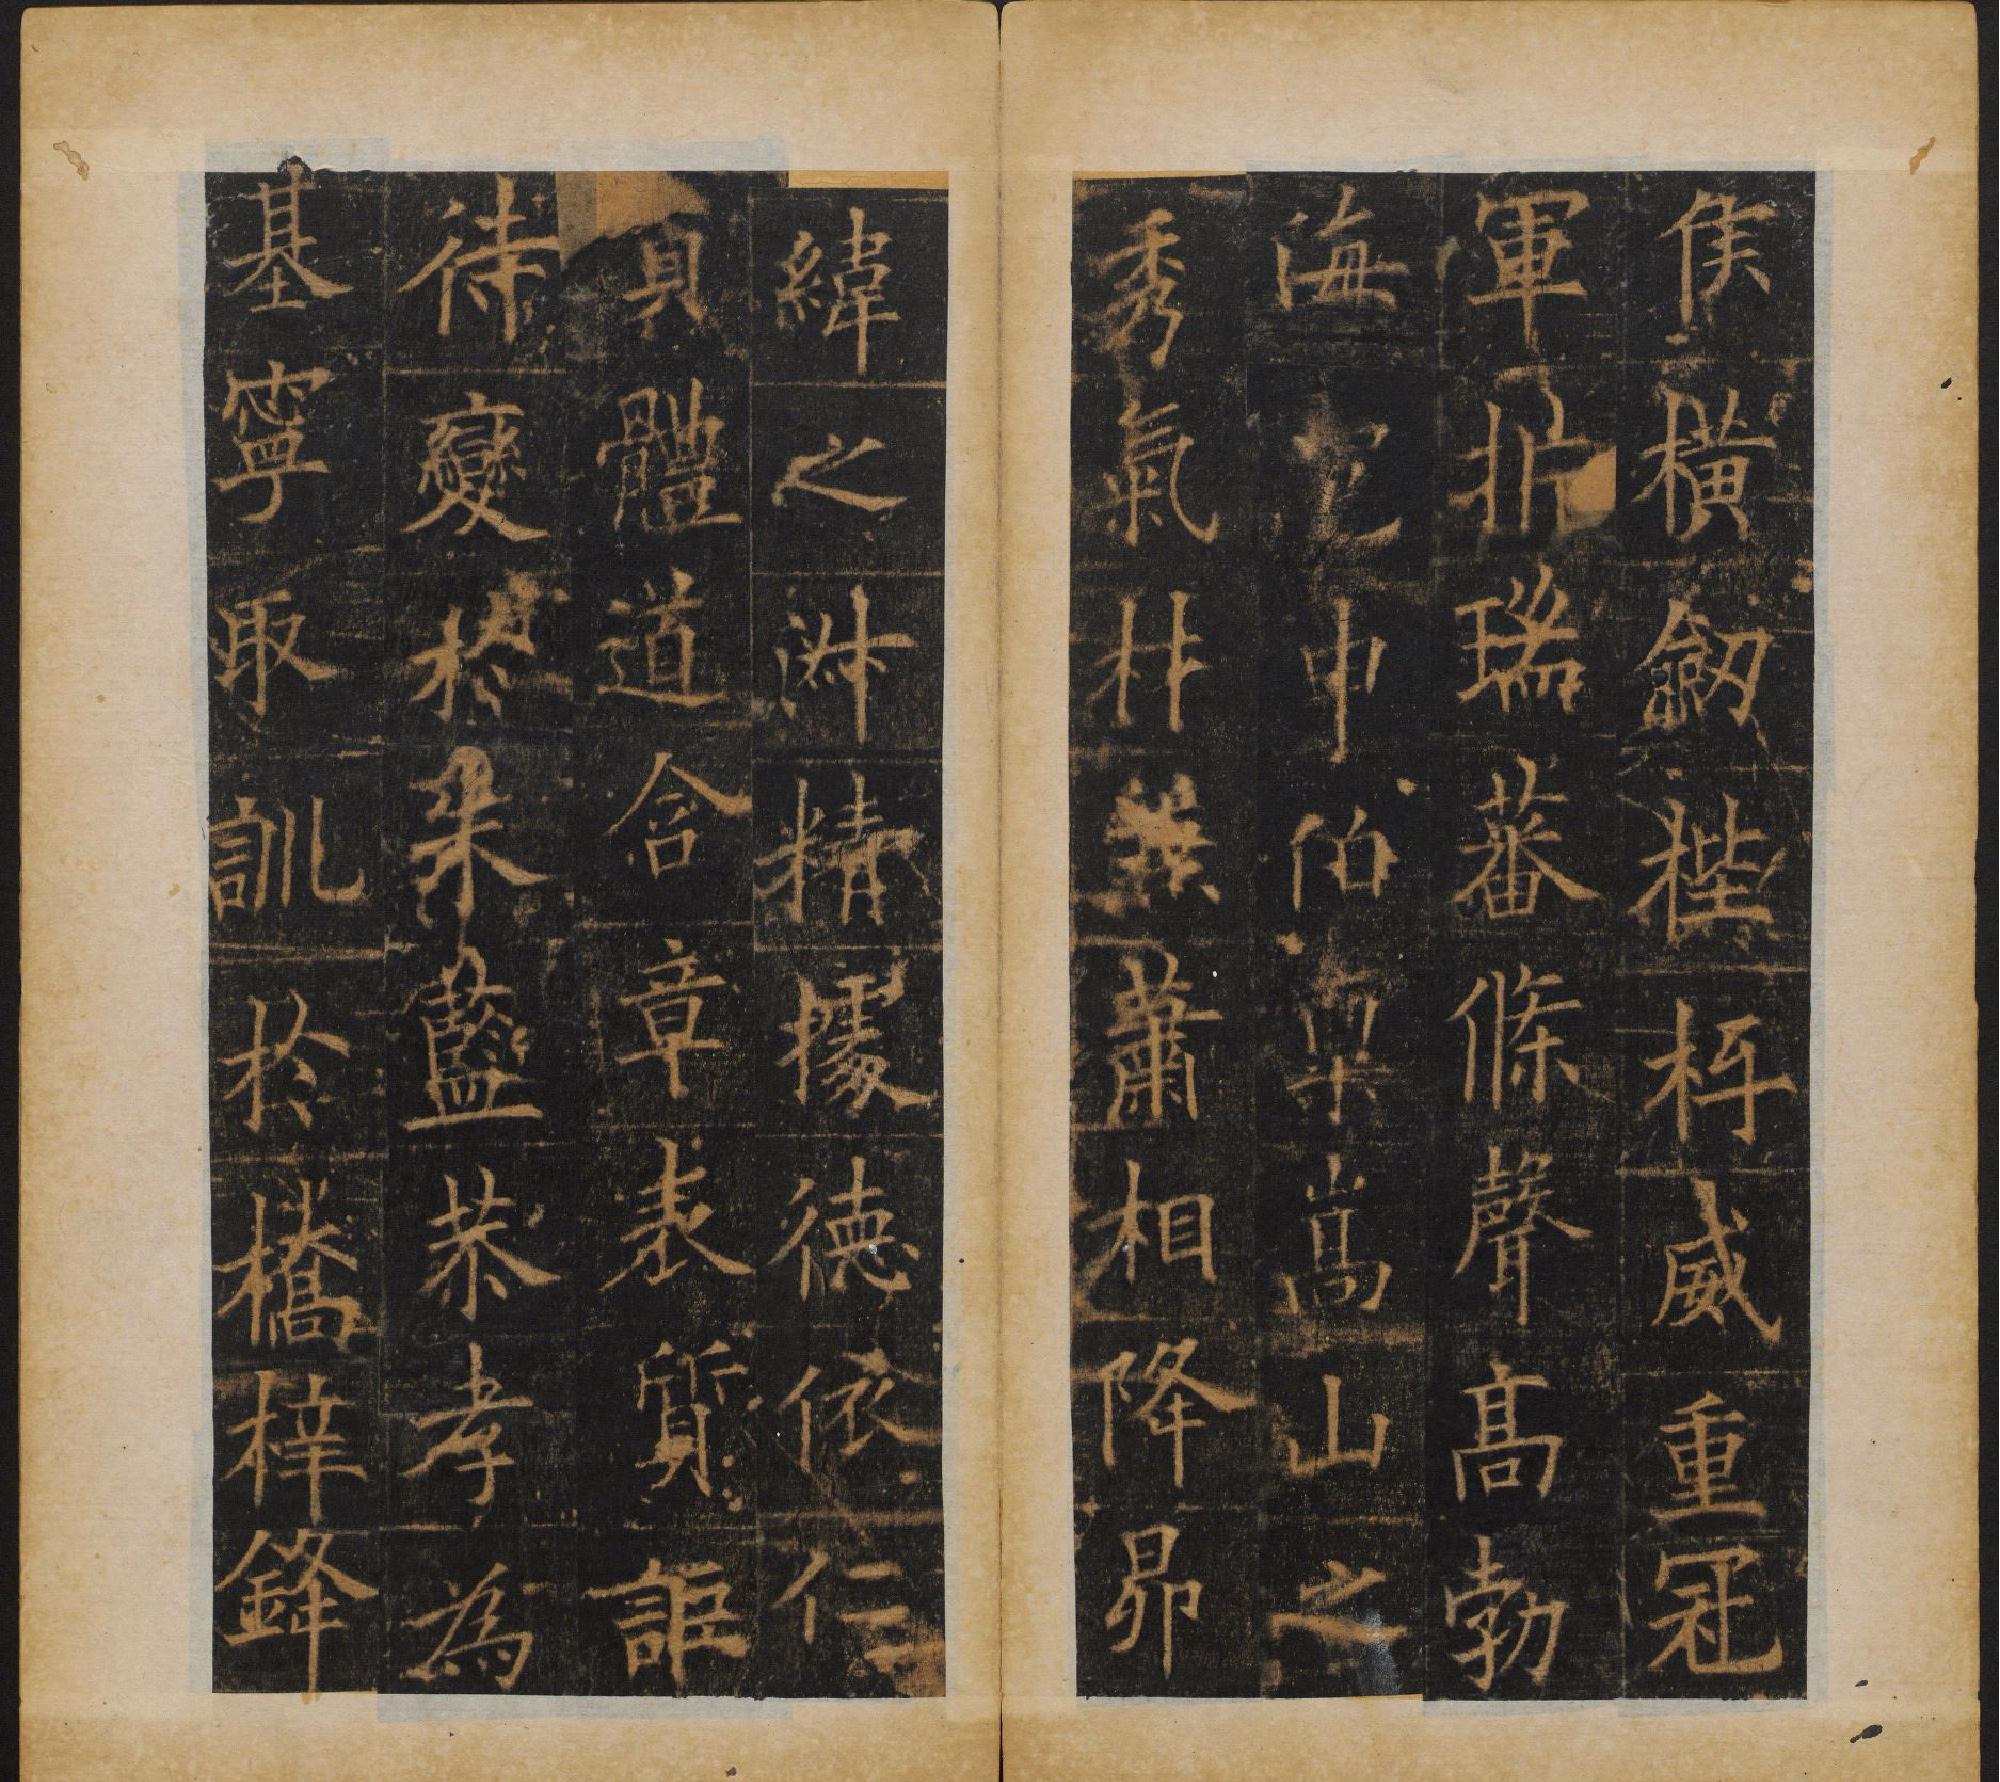 侯橫劒梐枑威重冠
軍析瑞蕃條聲高勃
海申伯稟嵩山之
秀氣材兼蕭相降昴
緯之淑精據德依仁
貞體道含章表質詎
待變於朱藍恭孝為
基寧取訓於橋梓鋒